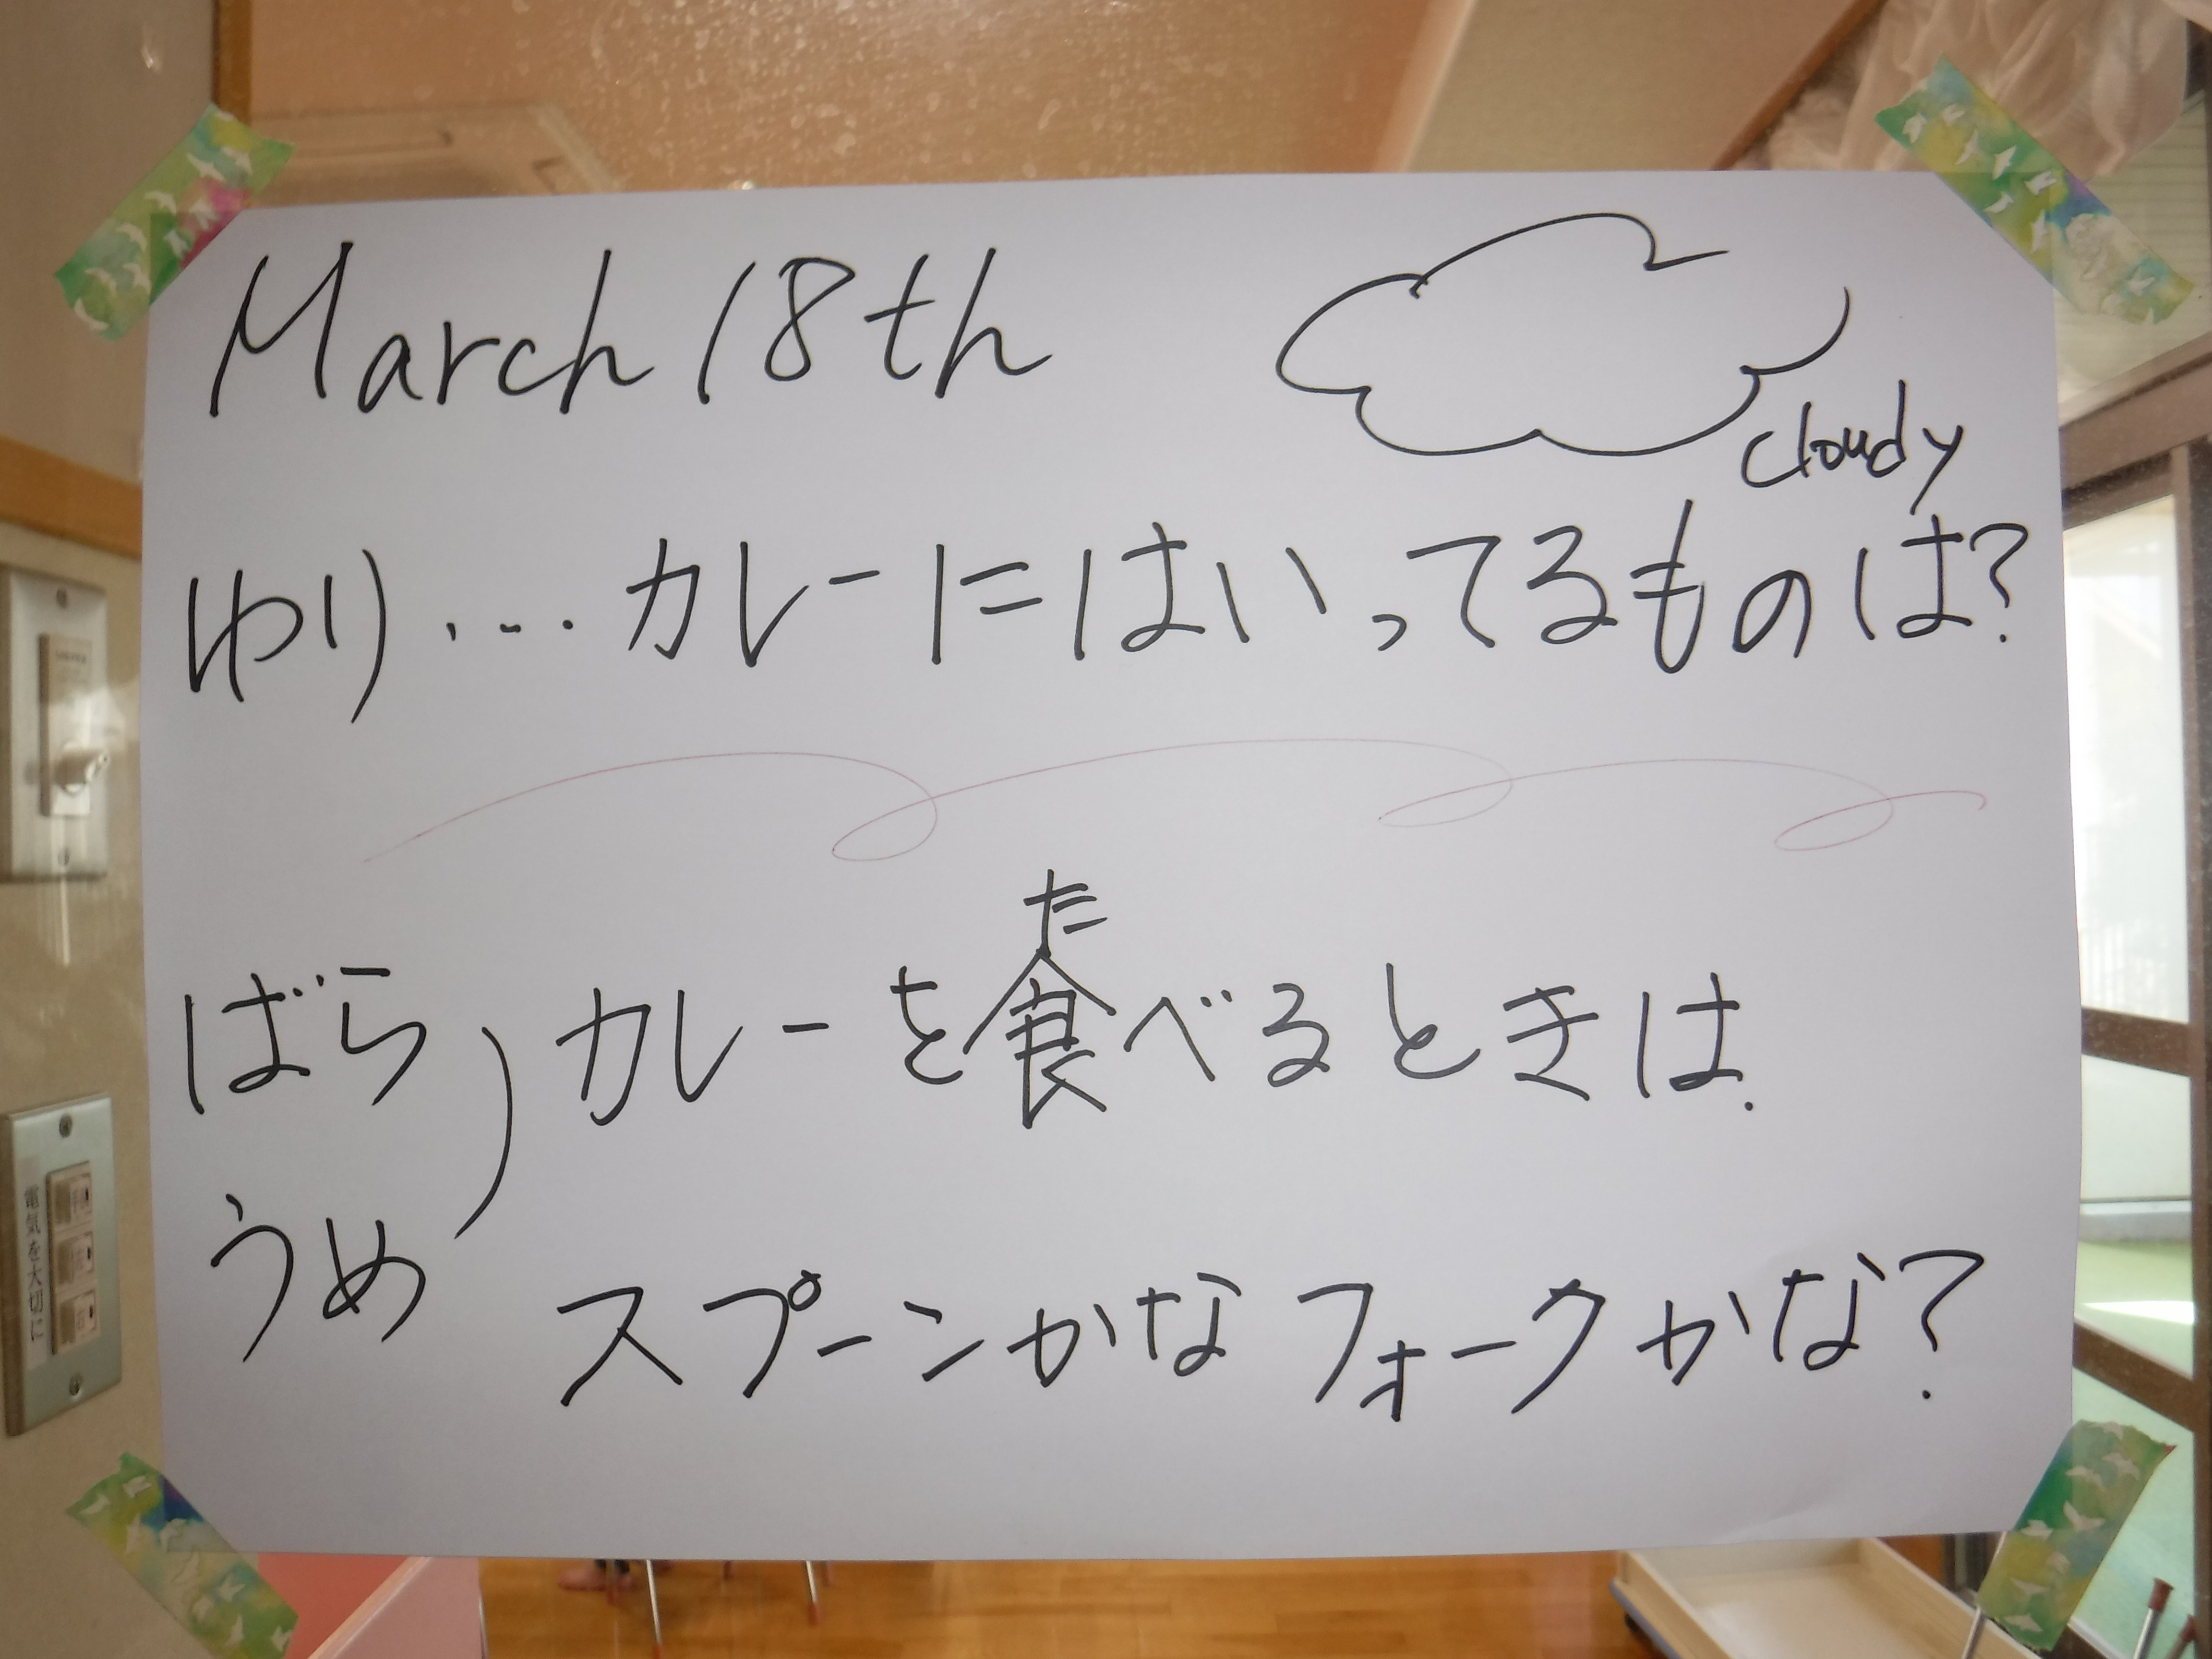 March 18th
cloudy
ゆり...カレーにはいってるものは?
た
ばら カレーを食べるときは.
うめ スプーンかなフォークかな?
電気を大切に